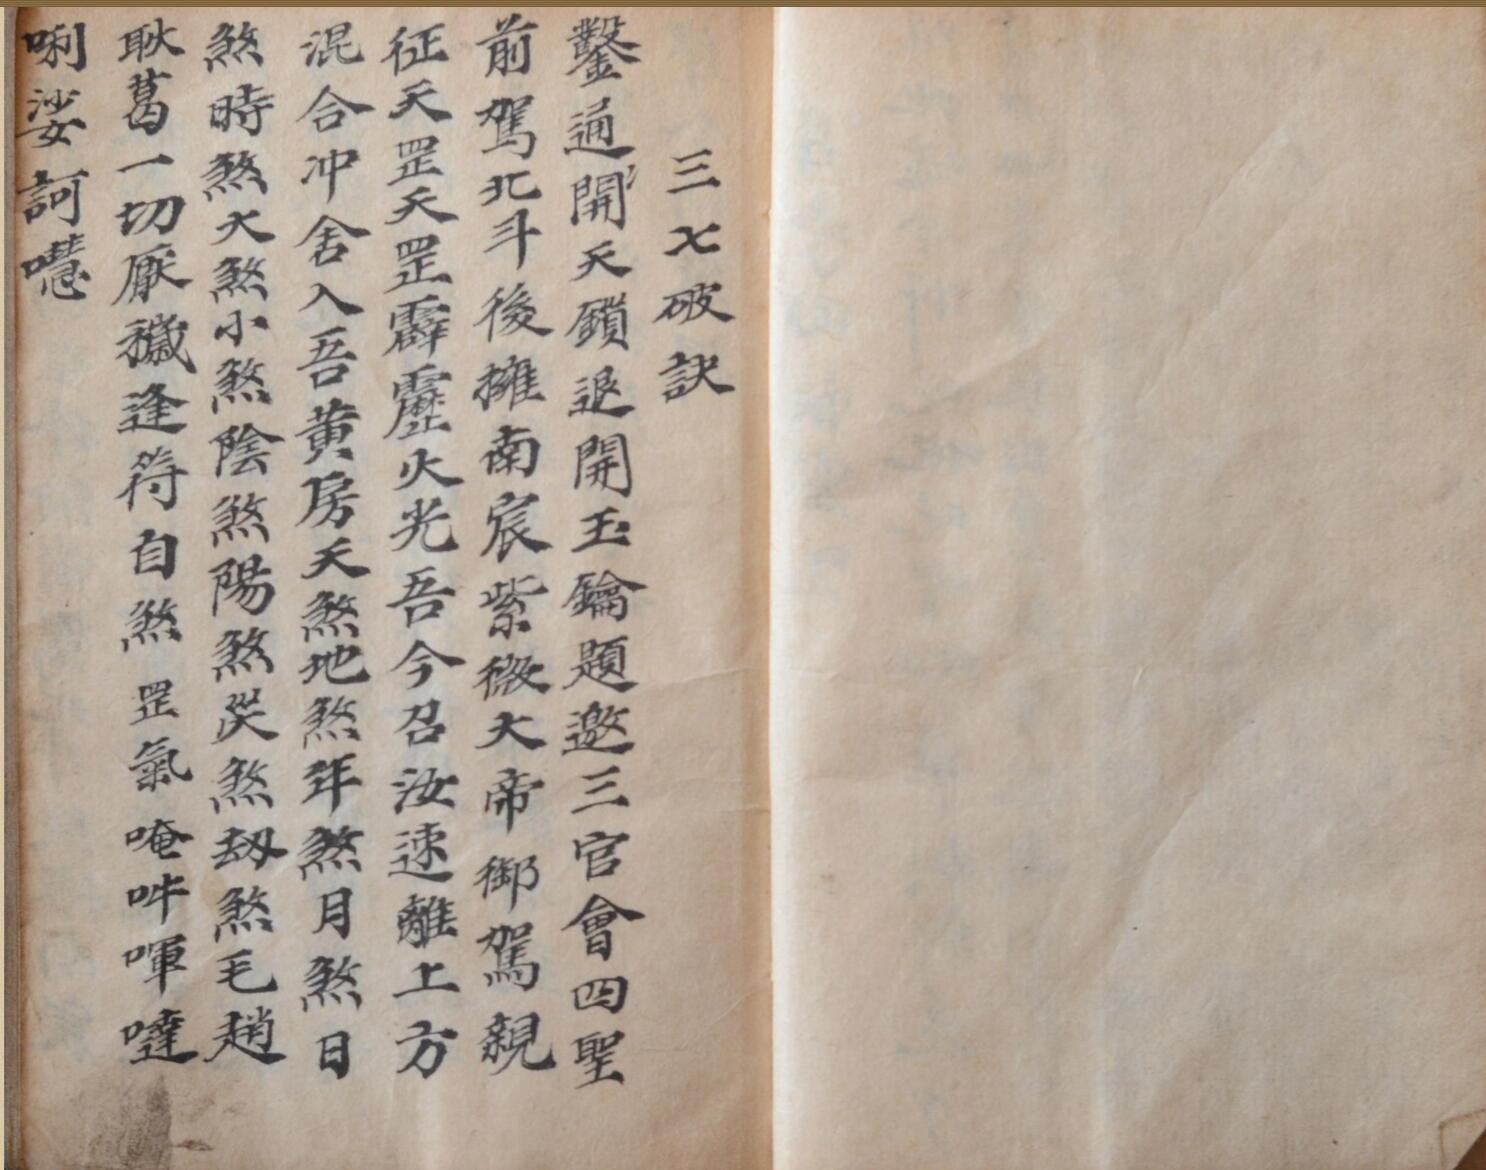 三七破訣
鑿通開天鎖退開玉鑰題邀三官會四聖
前駕北斗後擁南宸紫微大帝御駕親
征天罡天罡霹靂火光吾今召汝速離上方
混合冲舍入吾黄房天煞地煞年煞月煞日
煞時煞大煞小煞陰煞陽煞災煞刼煞毛趙
耿葛一切厭穢逢符自煞罡氣唵吽㖇噠
唎娑訶